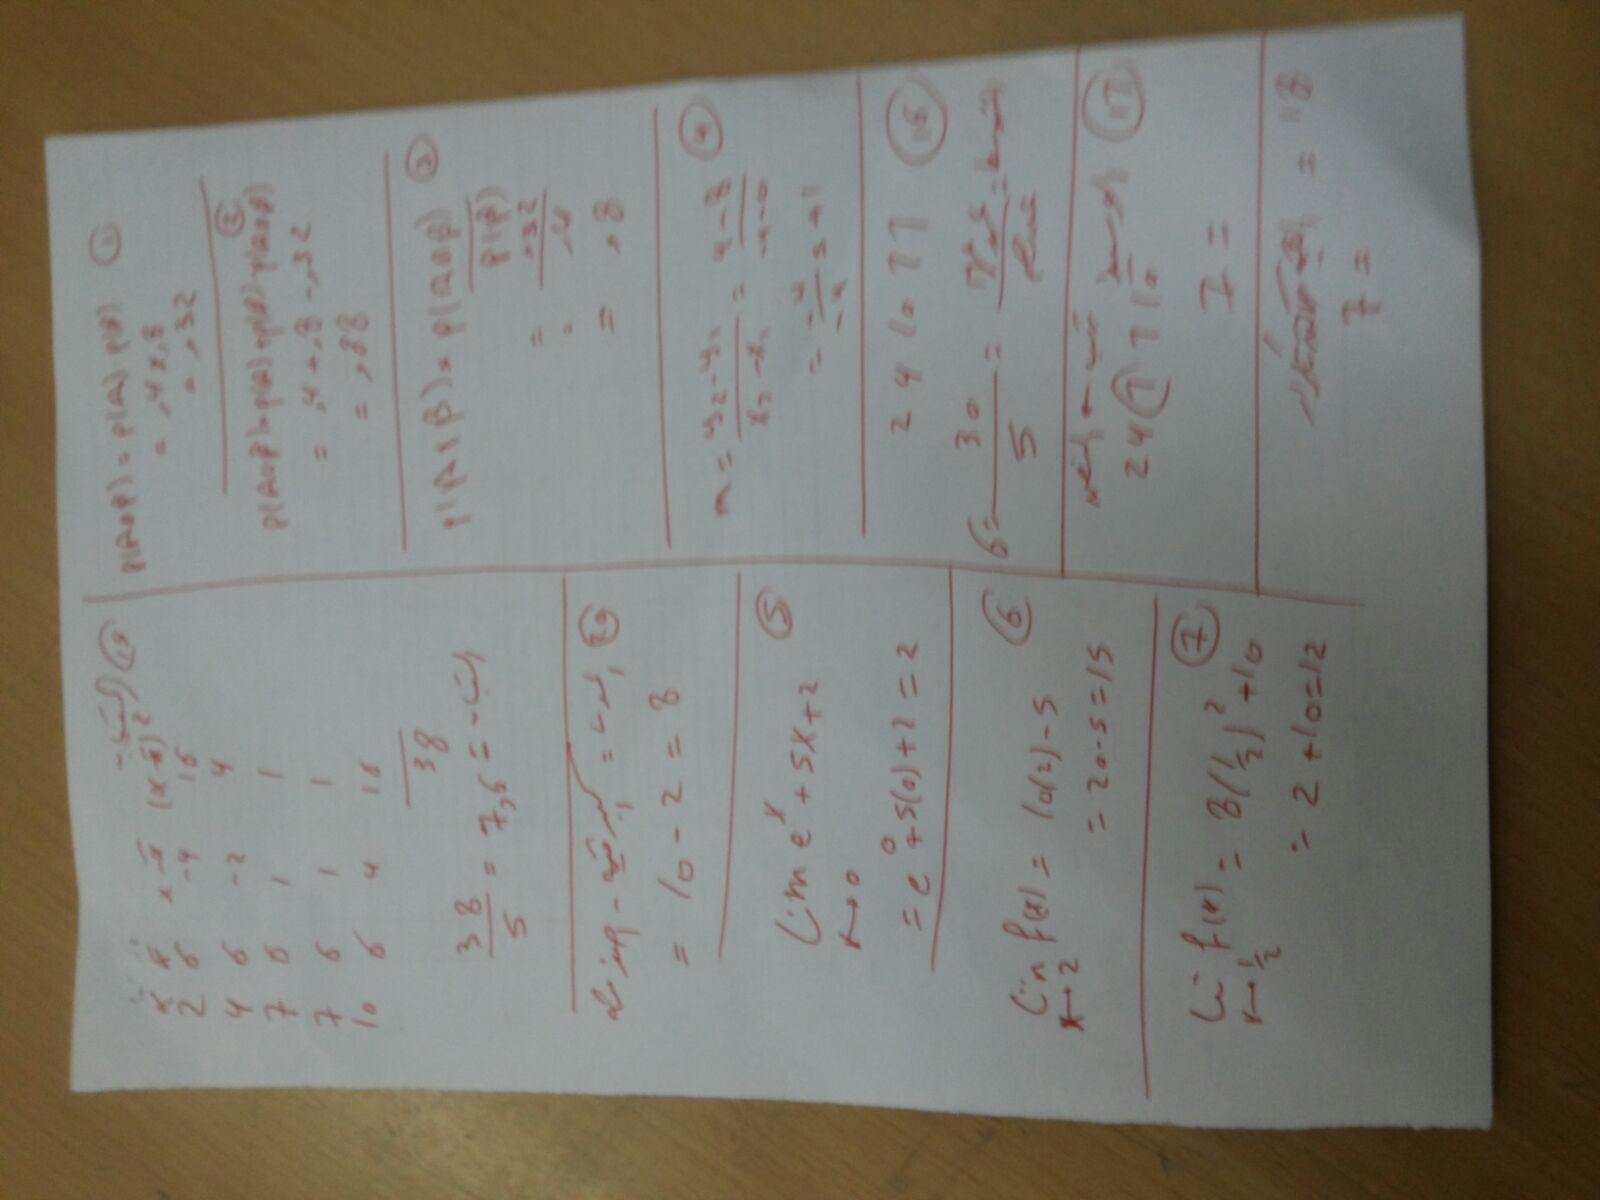 ①
P(A∩B) = P(A) P(B)
= .4 × .8
= .32
②
P(A∪B) = P(A) + P(B) - P(A∩B)
= .4 + .8 - .32
= .88
③
P(A|B) = P(A∩B) / P(B)
= .32 / .4
= .8
④
m = y2 - y1 / x2 - x1 = 4 - 8 / -4 - 0
= -4 / -4 = +1
⑯
2 4 10 7 7
6 = 30 / 5 =
⑰
2 4 ⑦ 7 10
7 =
18
7 =
⑲
x x̄ x - x̄ (x - x̄)²
2 6 -4 16
4 6 -2 4
7 6 1 1
7 6 1 1
10 6 4 16
38
38 / 5 = 7,6 =
⑳
= 10 - 2 = 8
⑤
Lim e^x + 5x + 2
x→0
= e^0 + 5(0) + 2 = 2
⑥
Lim f(x) = 10(2) - 5
x→2
= 20 - 5 = 15
⑦
Lim f(x) = 8(1/2)² + 10
x→1/2
= 2 + 10 = 12